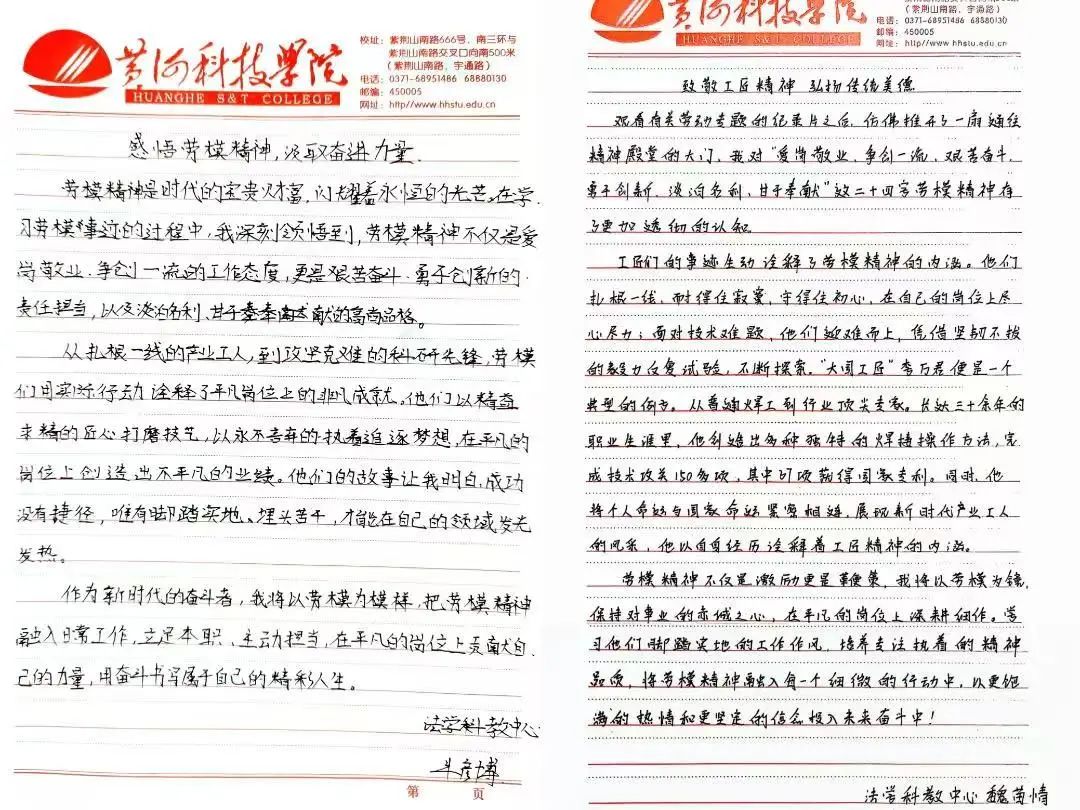 黄河科技学院
HUANGHE S&T COLLEGE
校址：紫荆山南路666号、南三环与
紫荆山南路交叉口向南500米
（紫荆山南路、宇通路）
电话：0371-68951486 68880130
邮编：450005
网址：http//www.hhstu.edu.cn
感悟劳模精神，汲取奋进力量.
劳模精神是时代的宝贵财富，闪耀着永恒的光芒。在学
习劳模事迹的过程中，我深刻领悟到，劳模精神不仅是爱
岗敬业、争创一流的工作态度，更是艰苦奋斗、勇于创新的
责任担当，以及淡泊名利、甘于奉献的高尚品格。
从扎根一线的产业工人，到攻坚克难的科研先锋，劳模
们用实际行动诠释了平凡岗位上的非凡成就。他们以精益
求精的匠心打磨技艺，以永不言弃的执着追逐梦想，在平凡的
岗位上创造出不平凡的业绩。他们的故事让我明白，成功
没有捷径，唯有脚踏实地、埋头苦干，才能在自己的领域发光
发热。
作为新时代的奋斗者，我将以劳模为榜样，把劳模精神
融入日常工作，立足本职、主动担当，在平凡的岗位上贡献自
己的力量，用奋斗书写属于自己的精彩人生。
法学科教中心
彦博
第 页
黄河科技学院
HUANGHE S&T COLLEGE
（紫荆山南路、宇通路）
电话：0371-68951486 68880130
邮编：450005
网址：http//www.hhstu.edu.cn
致敬工匠精神 弘扬传统美德
观看有关劳动专题的纪录片之后，仿佛推开了一扇通往
精神殿堂的大门，我对“爱岗敬业、争创一流，艰苦奋斗、
勇于创新，淡泊名利、甘于奉献”这二十四字劳模精神有
了更加透彻的认知。
工匠们的事迹生动诠释了劳模精神的内涵。他们
扎根一线，耐得住寂寞，守得住初心，在自己的岗位上尽
心尽力；面对技术难题，他们迎难而上，凭借坚韧不拔
的毅力反复试验，不断探索。“大国工匠”李万君便是一个
典型的例子。从普通焊工到行业顶尖专家。长达三十余年的
职业生涯里，他创造出多种独特的焊接操作方法，完
成技术攻关150多项，其中37项获得国家专利。同时，他
将个人命运与国家命运紧密相连，展现新时代产业工人
的风采，他以自身经历诠释着工匠精神的内涵。
劳模精神不仅是激励更是鞭策，我将以劳模为镜，
保持对事业的赤诚之心，在平凡的岗位上深耕细作。学
习他们脚踏实地的工作作风，培养专注执着的精神
品质，将劳模精神融入每一个细微的行动中，以更饱
满的热情和更坚定的信念投入未来奋斗中！
法学科教中心 魏苗情